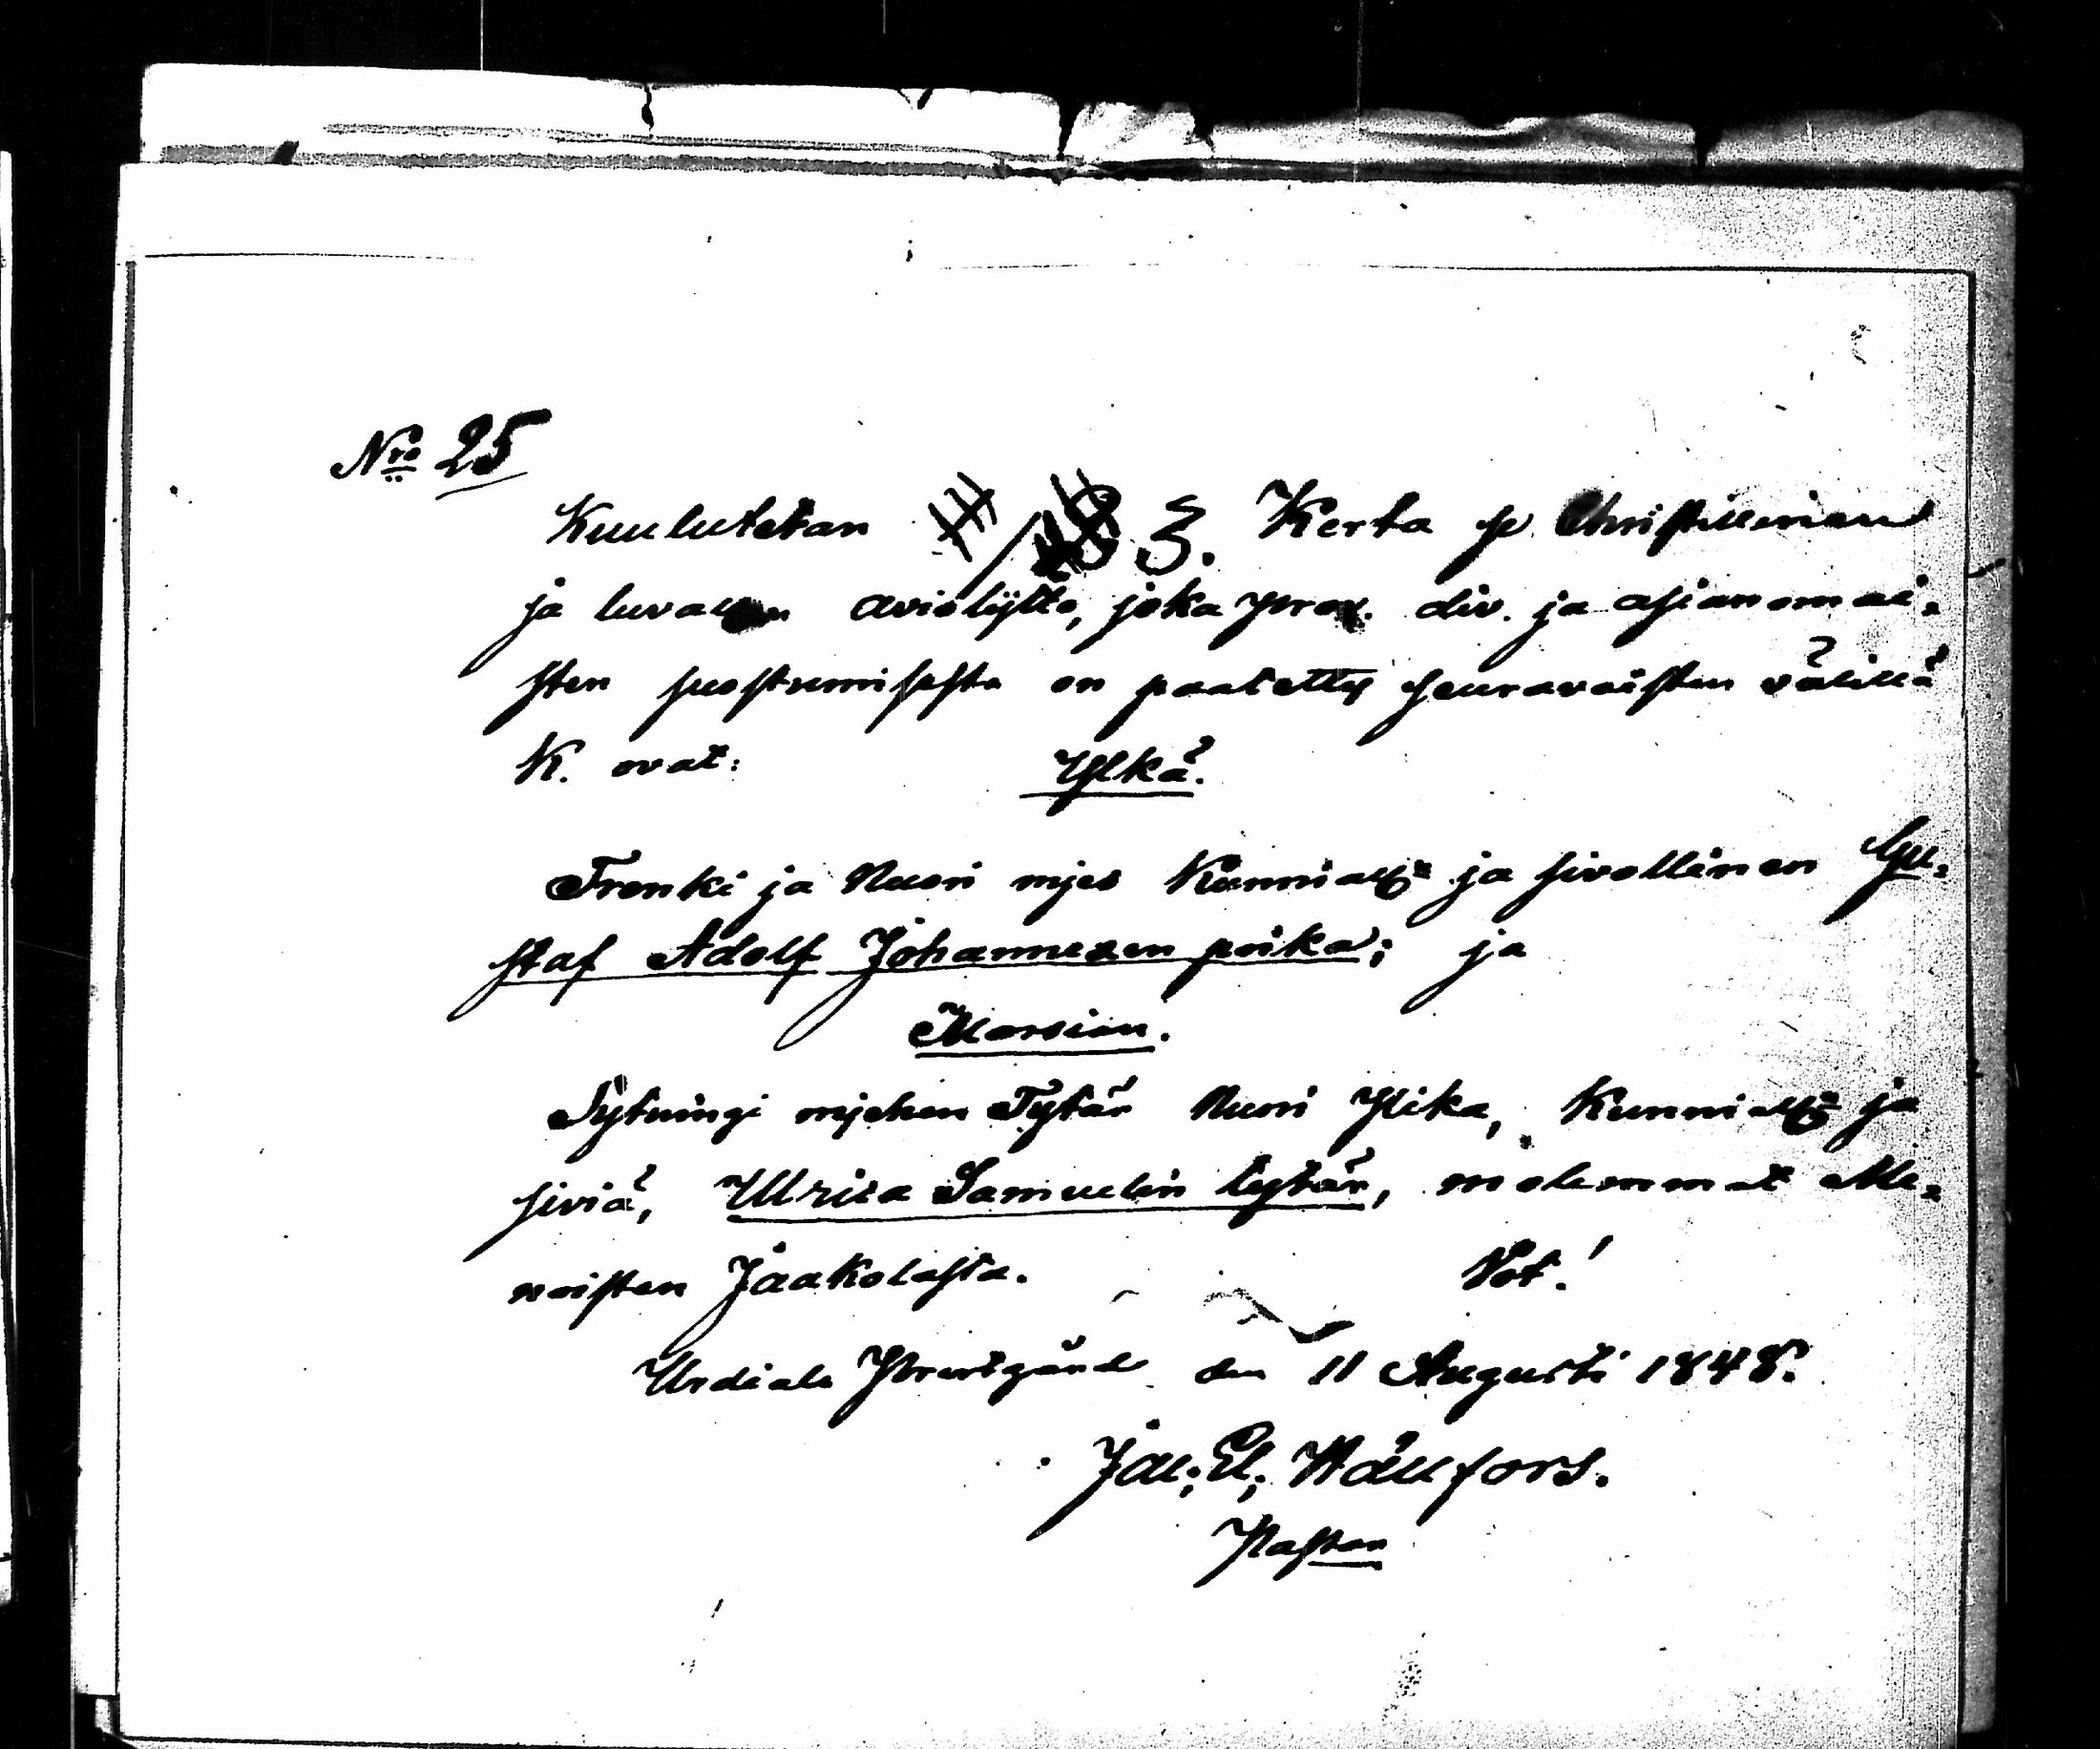 Nro 25
Kuulutetan 3. Kerta se Christillinen
ja luvallinen aviolijtto, joka prox. div. ja asianomai=
sten suostumisesta on paatetty seuravaisten välillä
K. ovat: Ylkä.
Trenki ja Nuori mjes Kunnialn ja sivollinen Gu=
staf Adolf Johannexen poika; ja
Morsian.
Sytningi mjehen Tytär Nuori Ylika, Kunnialn ja
siviä, Ulrica Samuelin tytär, molemmat Me=
noisten Jaakolasta. Vot!
Urdiala Prestgård den 11 Augusti 1848.
Jac; El; Hällfors.
Pastor